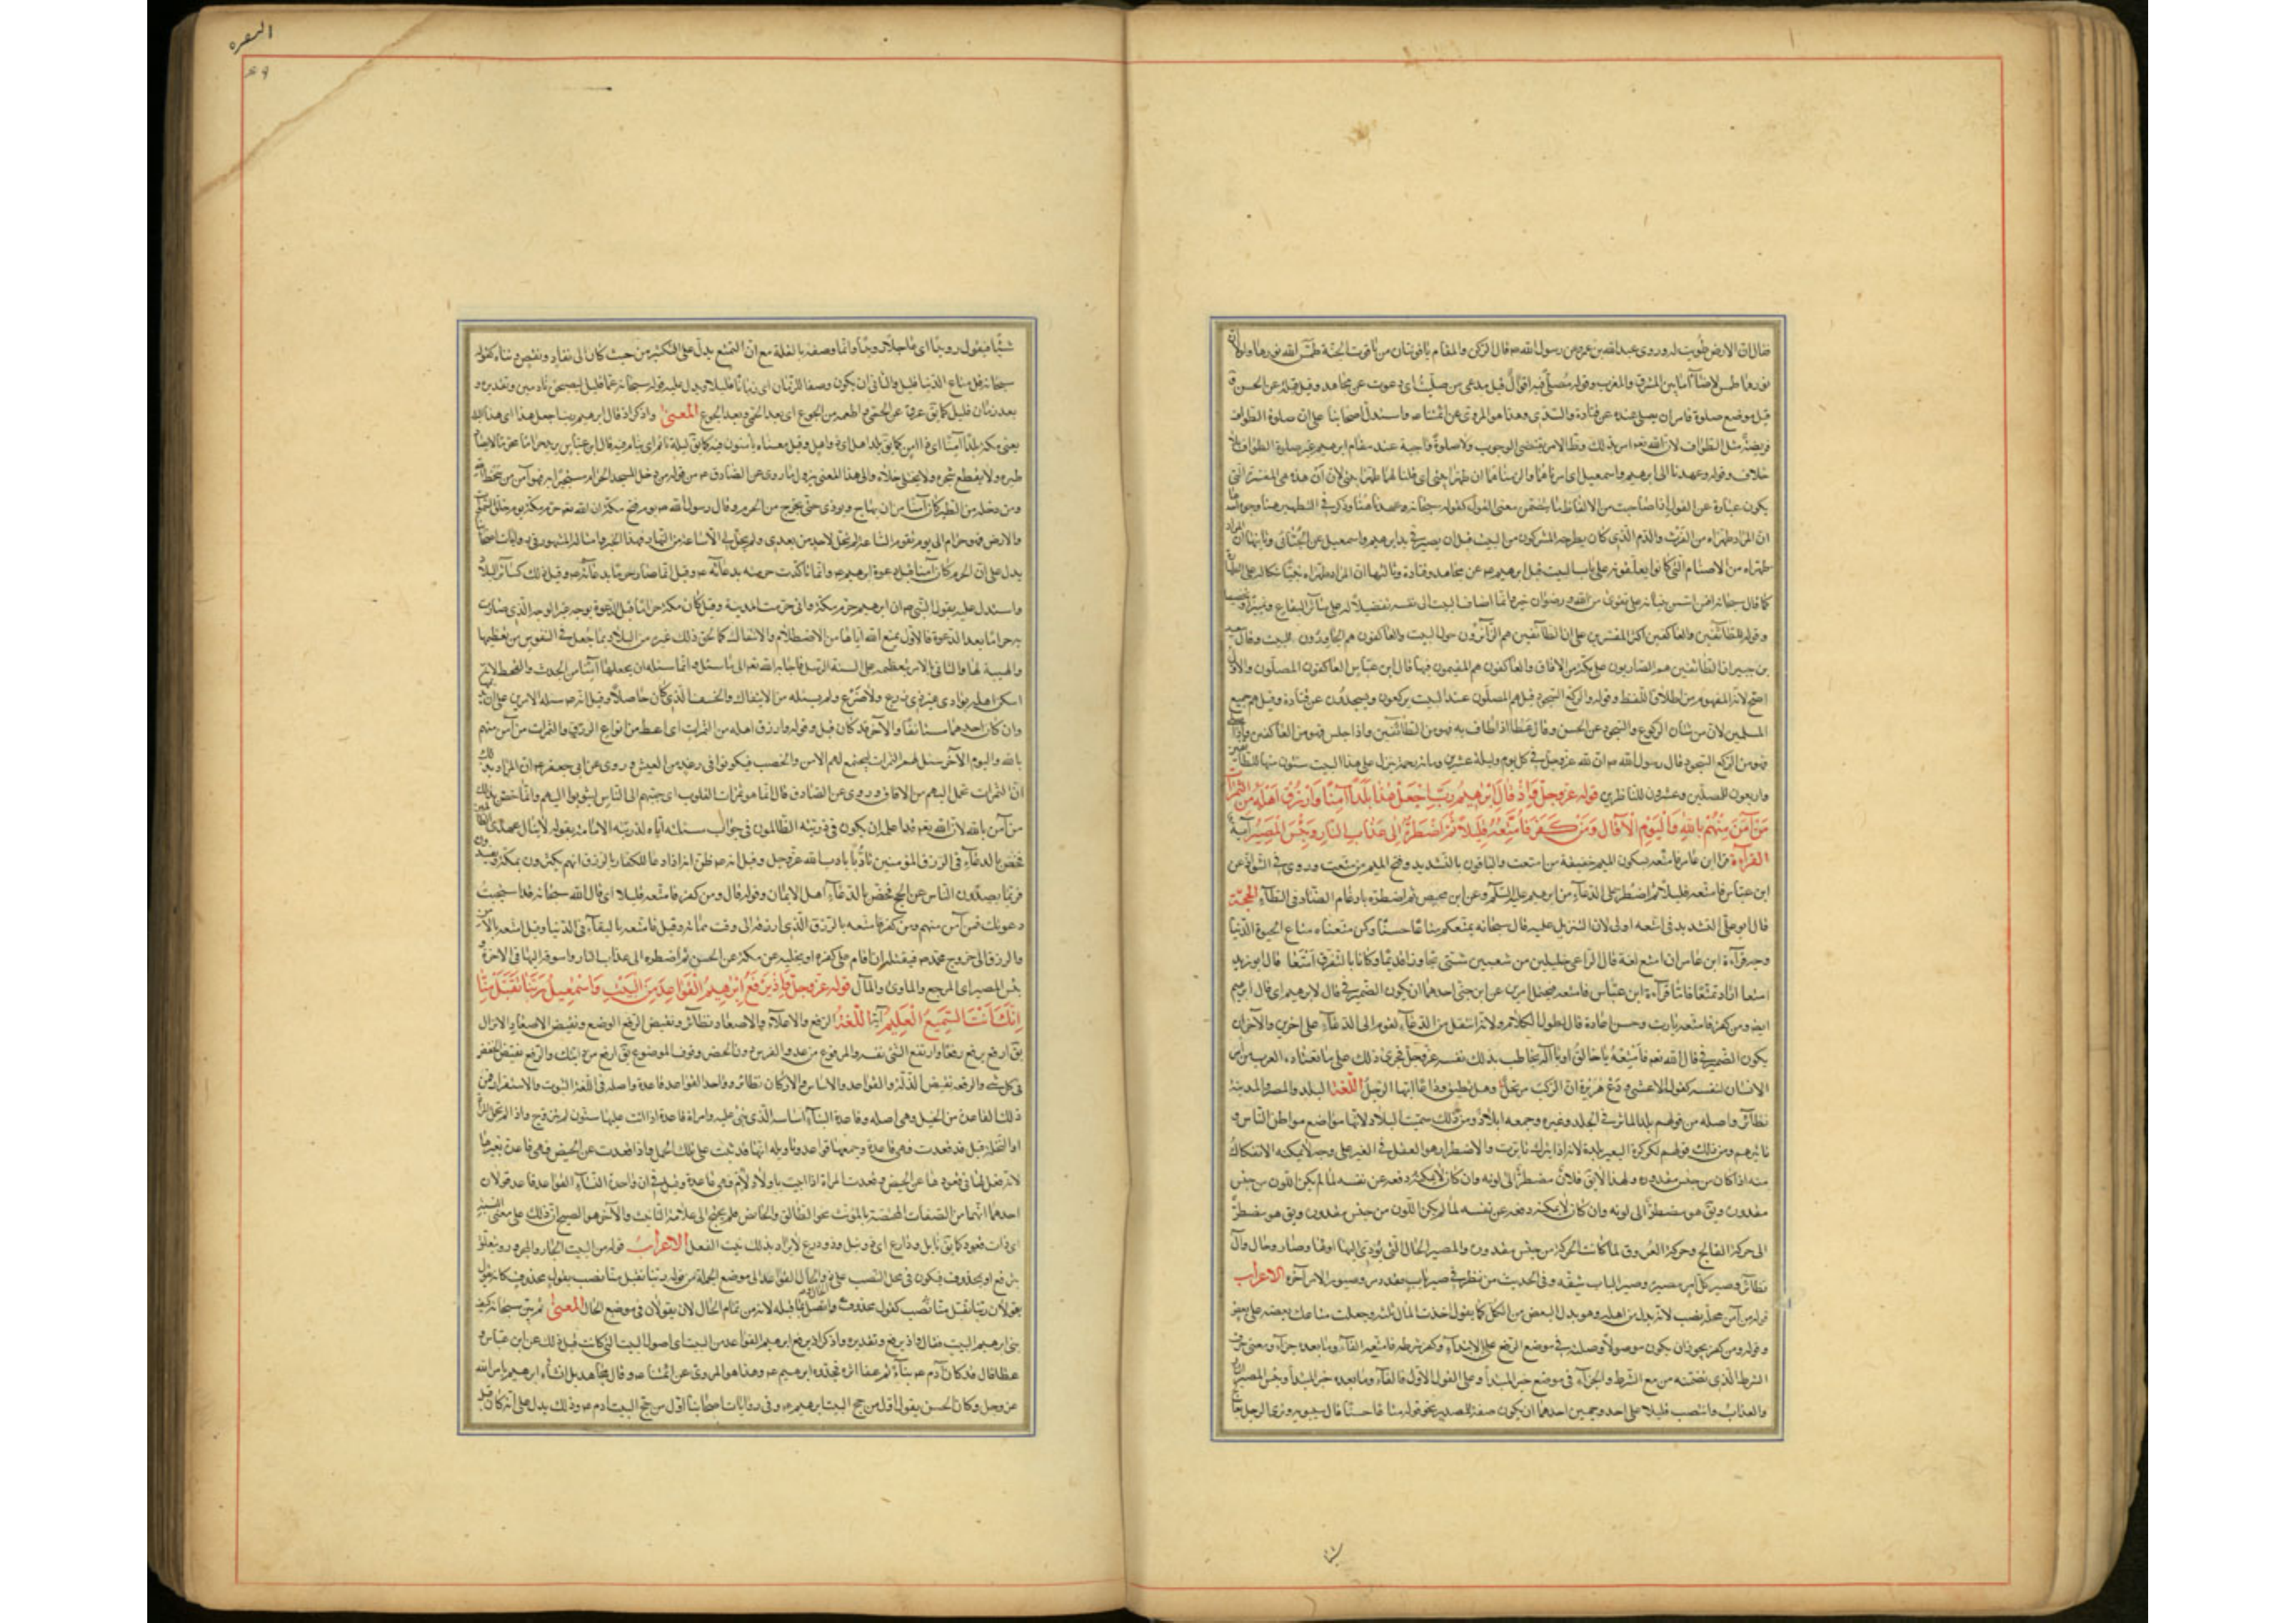 فقال ان الارض طويت له وروى عبدالله بن عمر عن رسول الله ص قال الركن والمقام ياقوتتان من ياقوت الجنة طمس الله نورهما ولولا ان
نورهما طمس لاضاآ ما بين المشرق والمغرب وقوله مصلى فيه اقوال قيل مدعى من صليت اى دعوت عن مجاهد وقيل قبلة عن الحسن و
قيل موضع صلوة فامر ان يصلى عنده عن قتادة والسدى وهذا هو المروى عن ائمتنا ع واستدل اصحابنا على ان صلوة الطواف
فريضة مثل الطواف لان الله تعالى امر بذلك وظاهر الامر يقتضى الوجوب ولا صلوة واجبة عند مقام ابرهيم غير صلوة الطواف بلا
خلاف وقوله وعهدنا الى ابرهيم واسمعيل اى امرناهما والزمناهما ان طهرا بيتى اى قلنا لهما طهرا بيتى لان ان هذه هى المفسرة التى
يكون عبارة عن القول اذا صاحبت من الالفاظ ما يتضمن معنى القول كقوله سبحانه وعهدنا هنا وذكر فى التطهير هنا وجوه احدها
ان المراد طهراه من الفرث والدم الذى كان يطرحه المشركون عند البيت قبل ان يصير فى يد ابرهيم واسمعيل عن الجبائى وثانيها ان المراد
طهراه من الاصنام التى كانوا يعلقونها على باب البيت قبل ابرهيم ع عن مجاهد وقتادة وثالثها ان المراد طهراه ببنائكما له على الطهارة
كما قال سبحانه افمن اسس بنيانه على تقوى من الله ورضوان خير وانما اضاف البيت الى نفسه تفضيلا له على سائر البقاع وتمييزا وتخصيصا
وقوله للطائفين والعاكفين اكثر المفسرين على ان الطائفين هم الزائرون حول البيت والعاكفون هم المجاورون للبيت وقال سعيد
بن جبير ان الطائفين هم الطاريون على مكة من الافاق والعاكفون هم المقيمون فيها قال ابن عباس العاكفون المصلون والاول
اصح لانه المفهوم من اطلاق اللفظ وقوله والركع السجود قيل هم المصلون عند البيت يركعون ويسجدون عن قتادة وقيل هم جميع
المسلمين لان من شان الركوع والسجود عن الحسن وقال عطا اذا طاف به فهو من الطائفين واذا جلس فهو من العاكفين واذا صلى
فهو من الركع السجود قال رسول الله ص ان الله عز وجل فى كل يوم وليلة عشرين ومائة رحمة ينزل على هذا البيت ستون منها للطائفين
واربعون للمصلين وعشرون للناظرين قوله عز وجل واذ قال ابرهيم رب اجعل هذا بلدا آمنا وارزق اهله من الثمرات
من آمن منهم بالله واليوم الآخر قال ومن كفر فامتعه قليلا ثم اضطره الى عذاب النار وبئس المصير آية
القراءة قرأ ابن عامر فامتعه بسكون الميم خفيفة من امتعت والباقون بالتشديد وفتح الميم من متعت وروى فى الشواذ عن
ابن عباس فامتعه قليلا ثم اضطره على الدعاء من ابرهيم عليه السلم وعن ابن محيصن ثم اضطره بادغام الضاد فى الطاء الحجة
قال ابو على التشديد فى امتعه اولى لان التنزيل عليه قال سبحانه يمتعكم متاعا حسنا وكمن متعناه متاع الحيوة الدنيا
وجه قراءة ابن عامر ان امتع لغة قال الراعى خليلين من شعبين شتى تجاورا قديما وكانا بالتفرق امتعا قال ابو زيد
امتعا اراد تمتعا فاما قراءة ابن عباس فامتعه فيحتمل امرين عن ابن جنى احدهما ان يكون الضمير فى قال لابرهيم اى قال ابرهيم
ايضا ومن كفر فامتعه يا رب وحسن اعادة قال لطول الكلام ولانه انتقل من الدعاء لقوم الى الدعاء على اخرين والآخر ان
يكون الضمير فى قال لله تعالى فامتعه يا خالق او يا اله يخاطب بذلك نفسه عز وجل فجرى ذلك على ما تعتاده العرب من امر
الانسان لنفسه كقول الاعشى ودع هريرة ان الركب مرتحل وهل تطيق وداعا ايها الرجل اللغة البلد والمصر والمدينة
نظائر واصله من قولهم بلد للاثر فى الجلد وغيره وجمعه ابلاد ومن ذلك سميت البلاد لانها مواضع مواطن الناس و
تاثيرهم ومن ذلك قولهم لكركرة البعير بلدة لانه اذا برك تاثرت والاضطرار هو الفعل فى الغير على وجه لا يمكنه الانفكاك
منه اذا كان من جنس مقدوره ولهذا لا يقال فلان مضطر الى لونه وان كان لا يمكنه دفعه عن نفسه لما لم يكن اللون من جنس
مقدوره ويقال هو مضطر الى لونه وان كان لا يمكنه دفعه عن نفسه لما لم يكن اللون من جنس مقدوره ويقال هو مضطر
الى حركة الفالج وحركة العروق لما كانت الحركة من جنس مقدوره والمصير الحال التى يؤدى اليها اولها وصار وحال وآل
نظائر وصير كل امر مصيره وصير الباب شقه وفى الحديث من نظر فى صير باب فقد دمر وصيور الامر آخره الاعراب
قوله من آمن محله نصب لانه بدل من اهله وهو بدل البعض من الكل كما يقول اخذت المال ثلثه وجعلت متاعك بعضه على بعض
وقوله ومن كفر يجوز ان يكون موصولا وصلة فى موضع الرفع على الابتداء وكفر شرطه فامتعه الفاء وما بعده جزاء ومعنى حرف
الشرط الذى تضمنته من مع الشرط والجزاء فى موضع خبر المبتدأ وعلى القول الاول فالفاء وما بعده خبر المبتدأ وبئس المصير النار
والعذاب وانتصب قليلا على احد وجهين احدهما ان يكون صفة للمصدر نحو قوله متاعا حسنا قال سيبويه وترى الرجل يعالج
البقره
شيئا فيقول رويدا اى علاجا رويدا وانما وصفه بالقلة مع ان التمتع يدل على التكثير من حيث كان الى نفاد ونقص وتناه كقوله
سبحانه قل متاع الدنيا قليل والثانى ان يكون وصفا للزمان اى زمانا قليلا ويدل عليه قوله سبحانه عما قليل ليصبحن نادمين وتقديره
بعد زمان قليل كما يقال عرق عن الحمى واطعمه من الجوع اى بعد الحمى وبعد الجوع المعنى واذكر اذ قال ابرهيم رب اجعل هذا اى هذا البلد
يعنى مكة بلدا آمنا اى ذا امن كما يقال بلد آهل اى ذو اهل وقيل معناه يأمنون فيه كما يقال ليل نائم اى ينام فيه قال ابن عباس يريد حراما محرما لا يصاد
طيره ولا يقطع شجره ولا يختلى خلاه والى هذا المعنى يؤول ما روى عن الصادق ع من قوله من دخل الحرم مستجيرا به فهو آمن من سخط الله
ومن دخله من الطير كان آمنا من ان يهاج ويؤذى حتى يخرج من الحرم وقال رسول الله ص يوم فتح مكة ان الله تعالى حرم مكة يوم خلق السموات
والارض فهى حرام الى يوم تقوم الساعة لم تحل لاحد من بعدى ولم تحل لى الا ساعة من النهار فهذا الخبر وامثاله المشهورة فى روايات اصحابنا
يدل على ان الحرم كان آمنا قبل دعوة ابرهيم ع وانما تاكدت حرمته بدعائه ع وقيل انما صار حرما بدعائه ع وقبل ذلك كسائر البلاد
واستدل عليه بقول النبى ص ان ابرهيم حرم مكة وانى حرمت المدينة وقيل كانت مكة حراما قبل الدعوة بوجه غير الوجه الذى صارت
به حراما بعد الدعوة فالاول بمنع الله اياها من الاصطلام والائتفاك كما لحق ذلك غيرها من البلاد وبما جعل فى النفوس من تعظيمها
والهيبة لها والثانى بالامر بتعظيمه على السنة الرسل فاجابه الله تعالى الى ما سئل وانما سئله ان يجعلها آمنا من الجدب والقحط لانه
اسكن اهله بواد غير ذى زرع ولا ضرع ولم يسئله من الائتفاك والخسف الذى كان حاصلا وقيل انه ص سئله الامرين على ان
وان كان احدهما مستانفا والآخر قد كان قبل وقوله وارزق اهله من الثمرات اى اعط من انواع الرزق والثمرات من آمن منهم
بالله واليوم الآخر سئل لهم الثمرات ليجتمع لهم الامن والخصب فيكونوا فى رغد من العيش وروى عن ابى جعفر ع ان المراد بذلك
ان الثمرات تحمل اليهم من الافاق وروى عن الصادق قال انما هو ثمرات القلوب اى حببهم الى الناس ليثوبوا اليهم وانما خص بذلك
من آمن بالله لان الله تعالى قد اعلمه ان يكون فى ذريته الظالمون فى جواب مسئلته اياه لذريته الامامة بقوله لا ينال عهدى الظالمين
فخص بالدعاء فى الرزق المؤمنين تأدبا بادب الله عز وجل وقيل انه ع ظن انه اذا دعا للكفار بالرزق انهم يكثرون بمكة ويفسدون
فربما يصدون الناس عن الحج فخص بالدعاء اهل الايمان وقوله قال ومن كفر فامتعه قليلا اى قال الله سبحانه قد استجبت
دعوتك فمن آمن منهم ومن كفر فامتعه بالرزق الذى ارزقه الى وقت مماته وقيل فامتعه بالبقاء فى الدنيا وقيل امتعه بالامن
والرزق الى خروج محمد ص فيقتله ان اقام على كفره او يجليه عن مكة عن الحسن ثم اضطره الى عذاب النار واسوقه اليها فى الاخرة
بئس المصير اى المرجع والماوى والمآل قوله عز وجل واذ يرفع ابرهيم القواعد من البيت واسمعيل ربنا تقبل منا
انك انت السميع العليم آية اللغة الرفع والاعلاء والاصعاد نظائر ونقيض الرفع الوضع ونقيض الاصعاد الانزال
يقال رفع يرفع رفعا وارتفع الشئ نفسه والمرفوع من عدو الفرس دون الحضر وفوق الموضوع يقال ارفع من دابتك والرفع نقيض الخفض
فى كل شئ والرفعة نقيض الذلة والقواعد والاساس والاركان نظائر وواحد القواعد قاعدة واصله فى اللغة الثبوت والاستقرار فمن
ذلك القاعدة من الجبل وهى اصله وقاعدة البناء اساسه الذى بنى عليه وامراة قاعدة اذا اتت عليها سنون لم تتزوج واذا لم تحمل المرأة
او النخلة قيل قد قعدت فهى قاعدة وجمعها قواعد وتاويله انها قد ثبتت على ترك الحمل واذا قعدت عن الحيض فهى قاعدة بغير ها
لانه لا فعل لها فى قعودها عن الحيض وقعدت المراة اذا اتت باولاد لئام فهى قاعدة وقيل فى ان واحدة النساء القواعد قاعد قولان
احدهما انها من الصفات المختصة بالمؤنث نحو الطالق والحائض فلم يحتج الى علامة التانيث والآخر هو الصحيح ان ذلك على معنى النسبة
اى ذات قعود كما يقال نابل ودارع اى ذو نبل وذو درع لا يراد بذلك تثبيت الفعل الاعراب قوله من البيت الجار والمجرور يتعلق
بيرفع او بمحذوف فيكون فى محل النصب على الحال وذو الحال القواعد الى موضع الجملة من قوله ربنا تقبل منا نصب بقول محذوف كانه قال
يقولان ربنا تقبل منا نصب كقول محذوف واتصل بما قبله لانه من تمام الحال لان يقولان فى موضع الحال المعنى ثم بين سبحانه كيف
بنى ابرهيم البيت فقال واذ يرفع وتقديره واذكر اذ يرفع ابرهيم القواعد من البيت اى اصول البيت التى كانت قبل ذلك عن ابن عباس و
عطا قال قد كان آدم ع بناه ثم عفا اثره فجدده ابرهيم ع وهذا هو المروى عن ائمتنا ع وقال مجاهد بل انشأه ابرهيم بامر الله
عز وجل وكان الحسن يقول اول من حج البيت ابرهيم ع وفى روايات اصحابنا اول من حج البيت ادم ع وذلك يدل على انه كان قبل